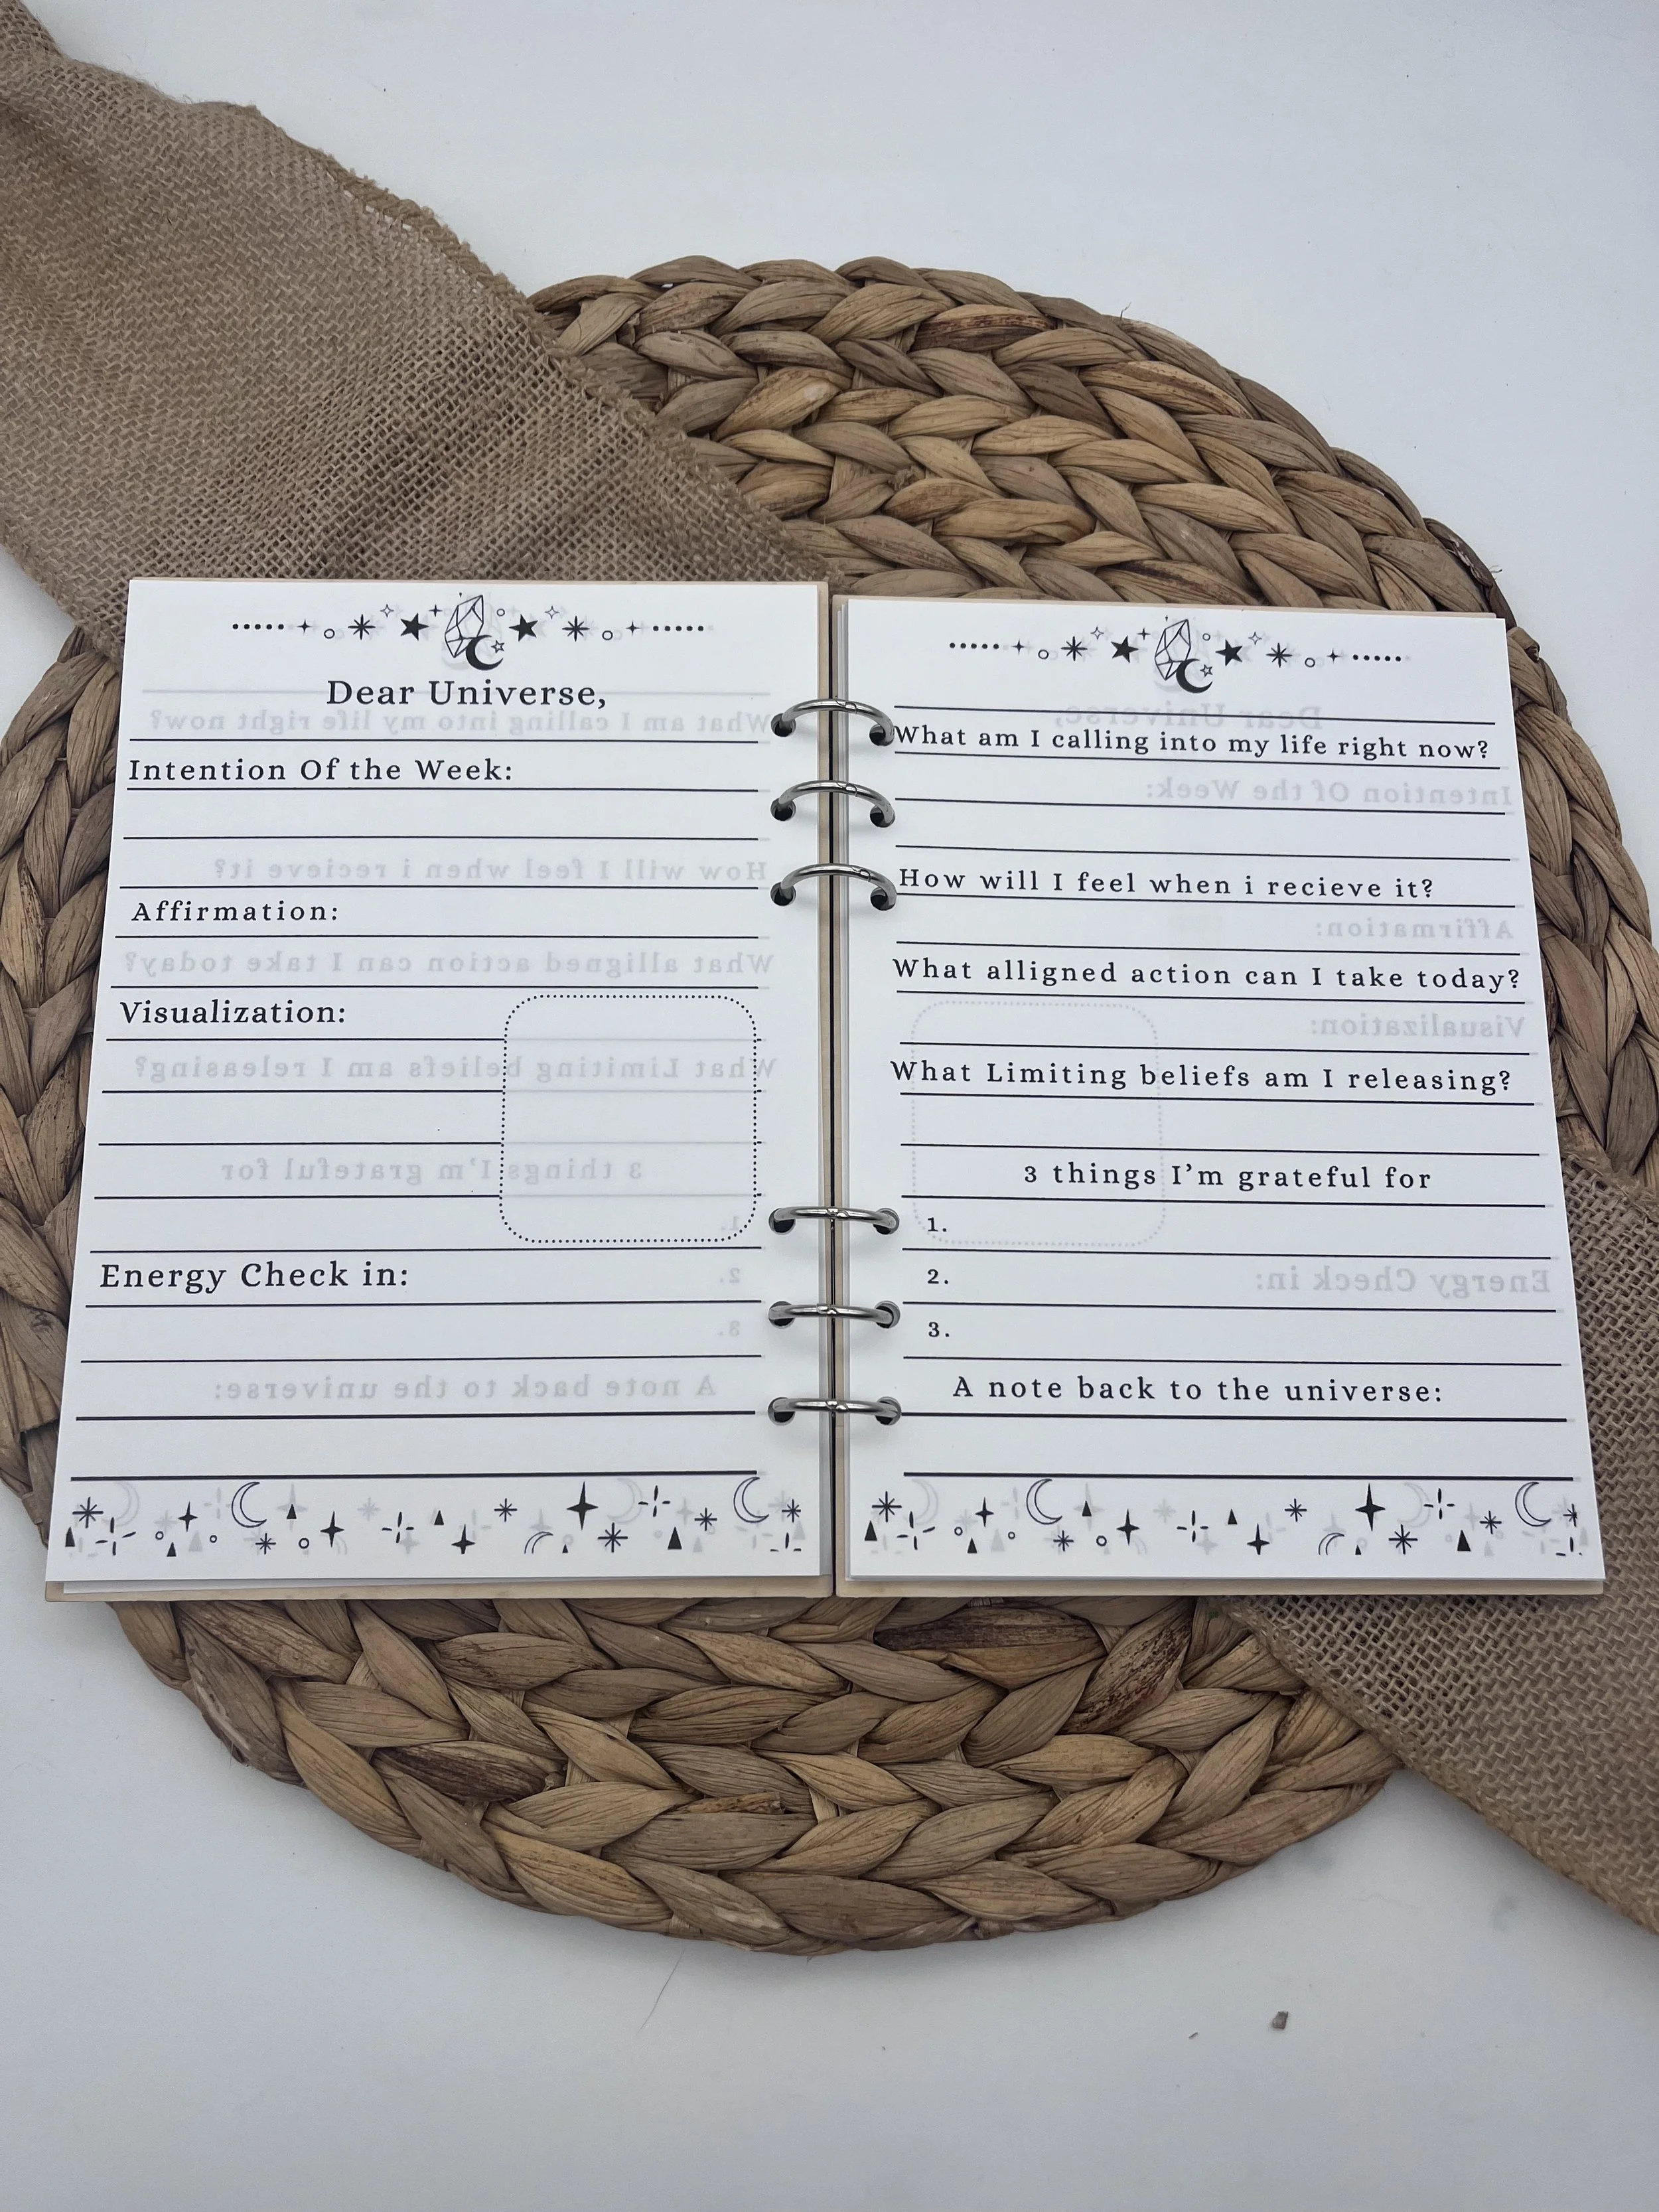 Dear Universe,
Intention Of the Week:
Affirmation:
Visualization:
Energy Check in:
What am I calling into my life right now?
How will I feel when i recieve it?
What alligned action can I take today?
What Limiting beliefs am I releasing?
3 things I'm grateful for
1.
2.
3.
A note back to the universe: